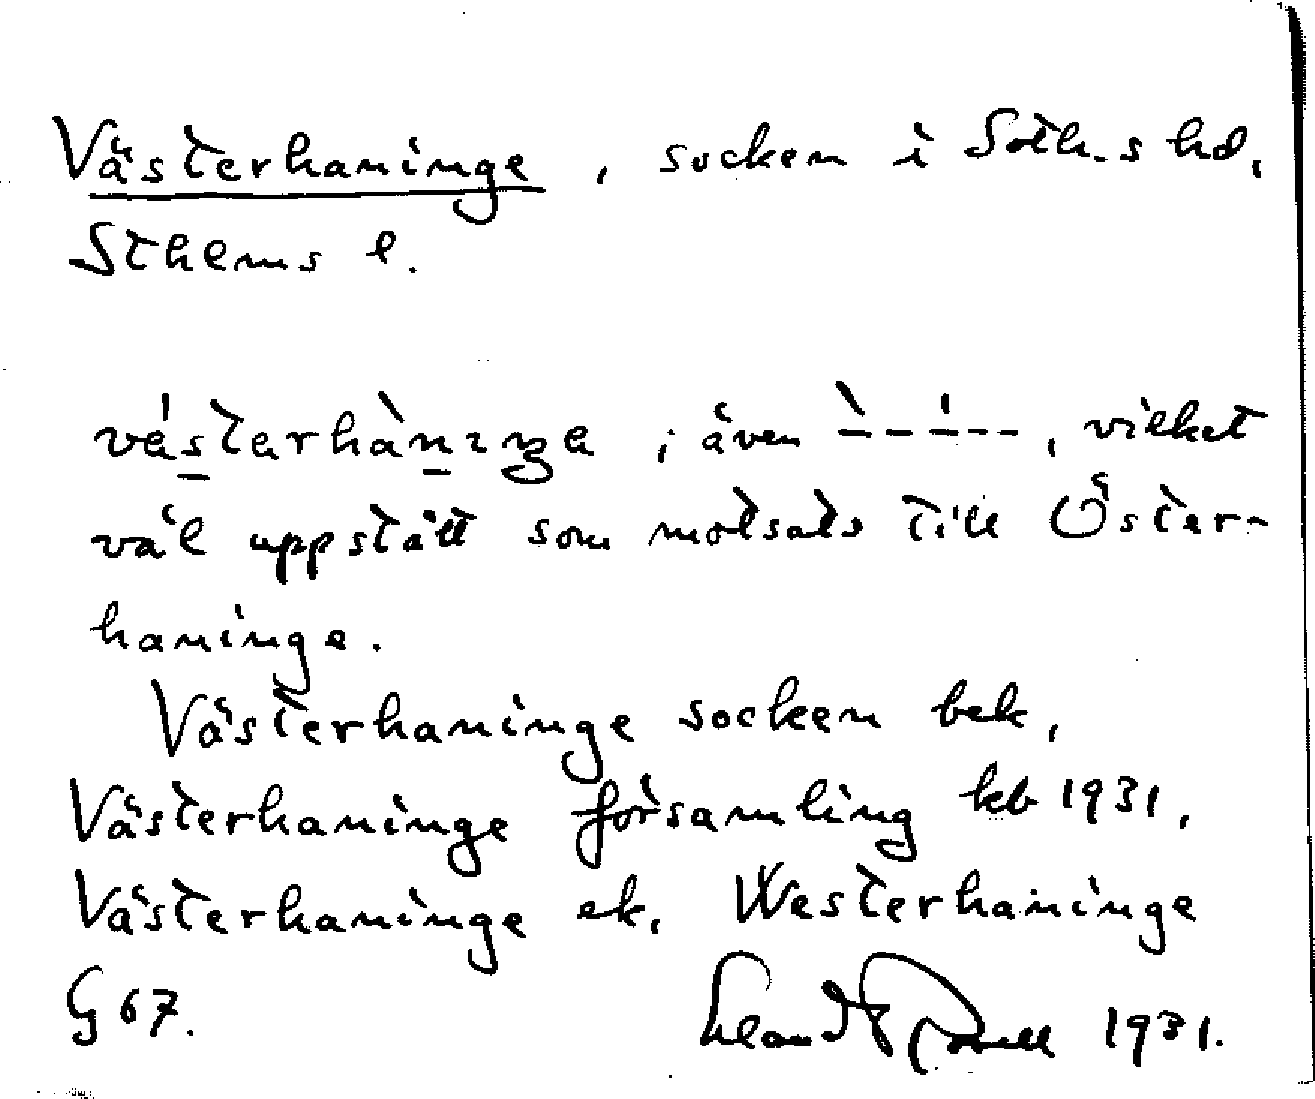 Västerhaninge, socken i Soth.s hd,
Sthlms l.
västerhànınga, även `--'--, vilket
väl uppstått som motsats till Öster-
haninge.
Västerhaninge socken bek,
Västerhaninge församling kb 1931,
Västerhaninge ek, Westerhaninge
G 67.
1931.